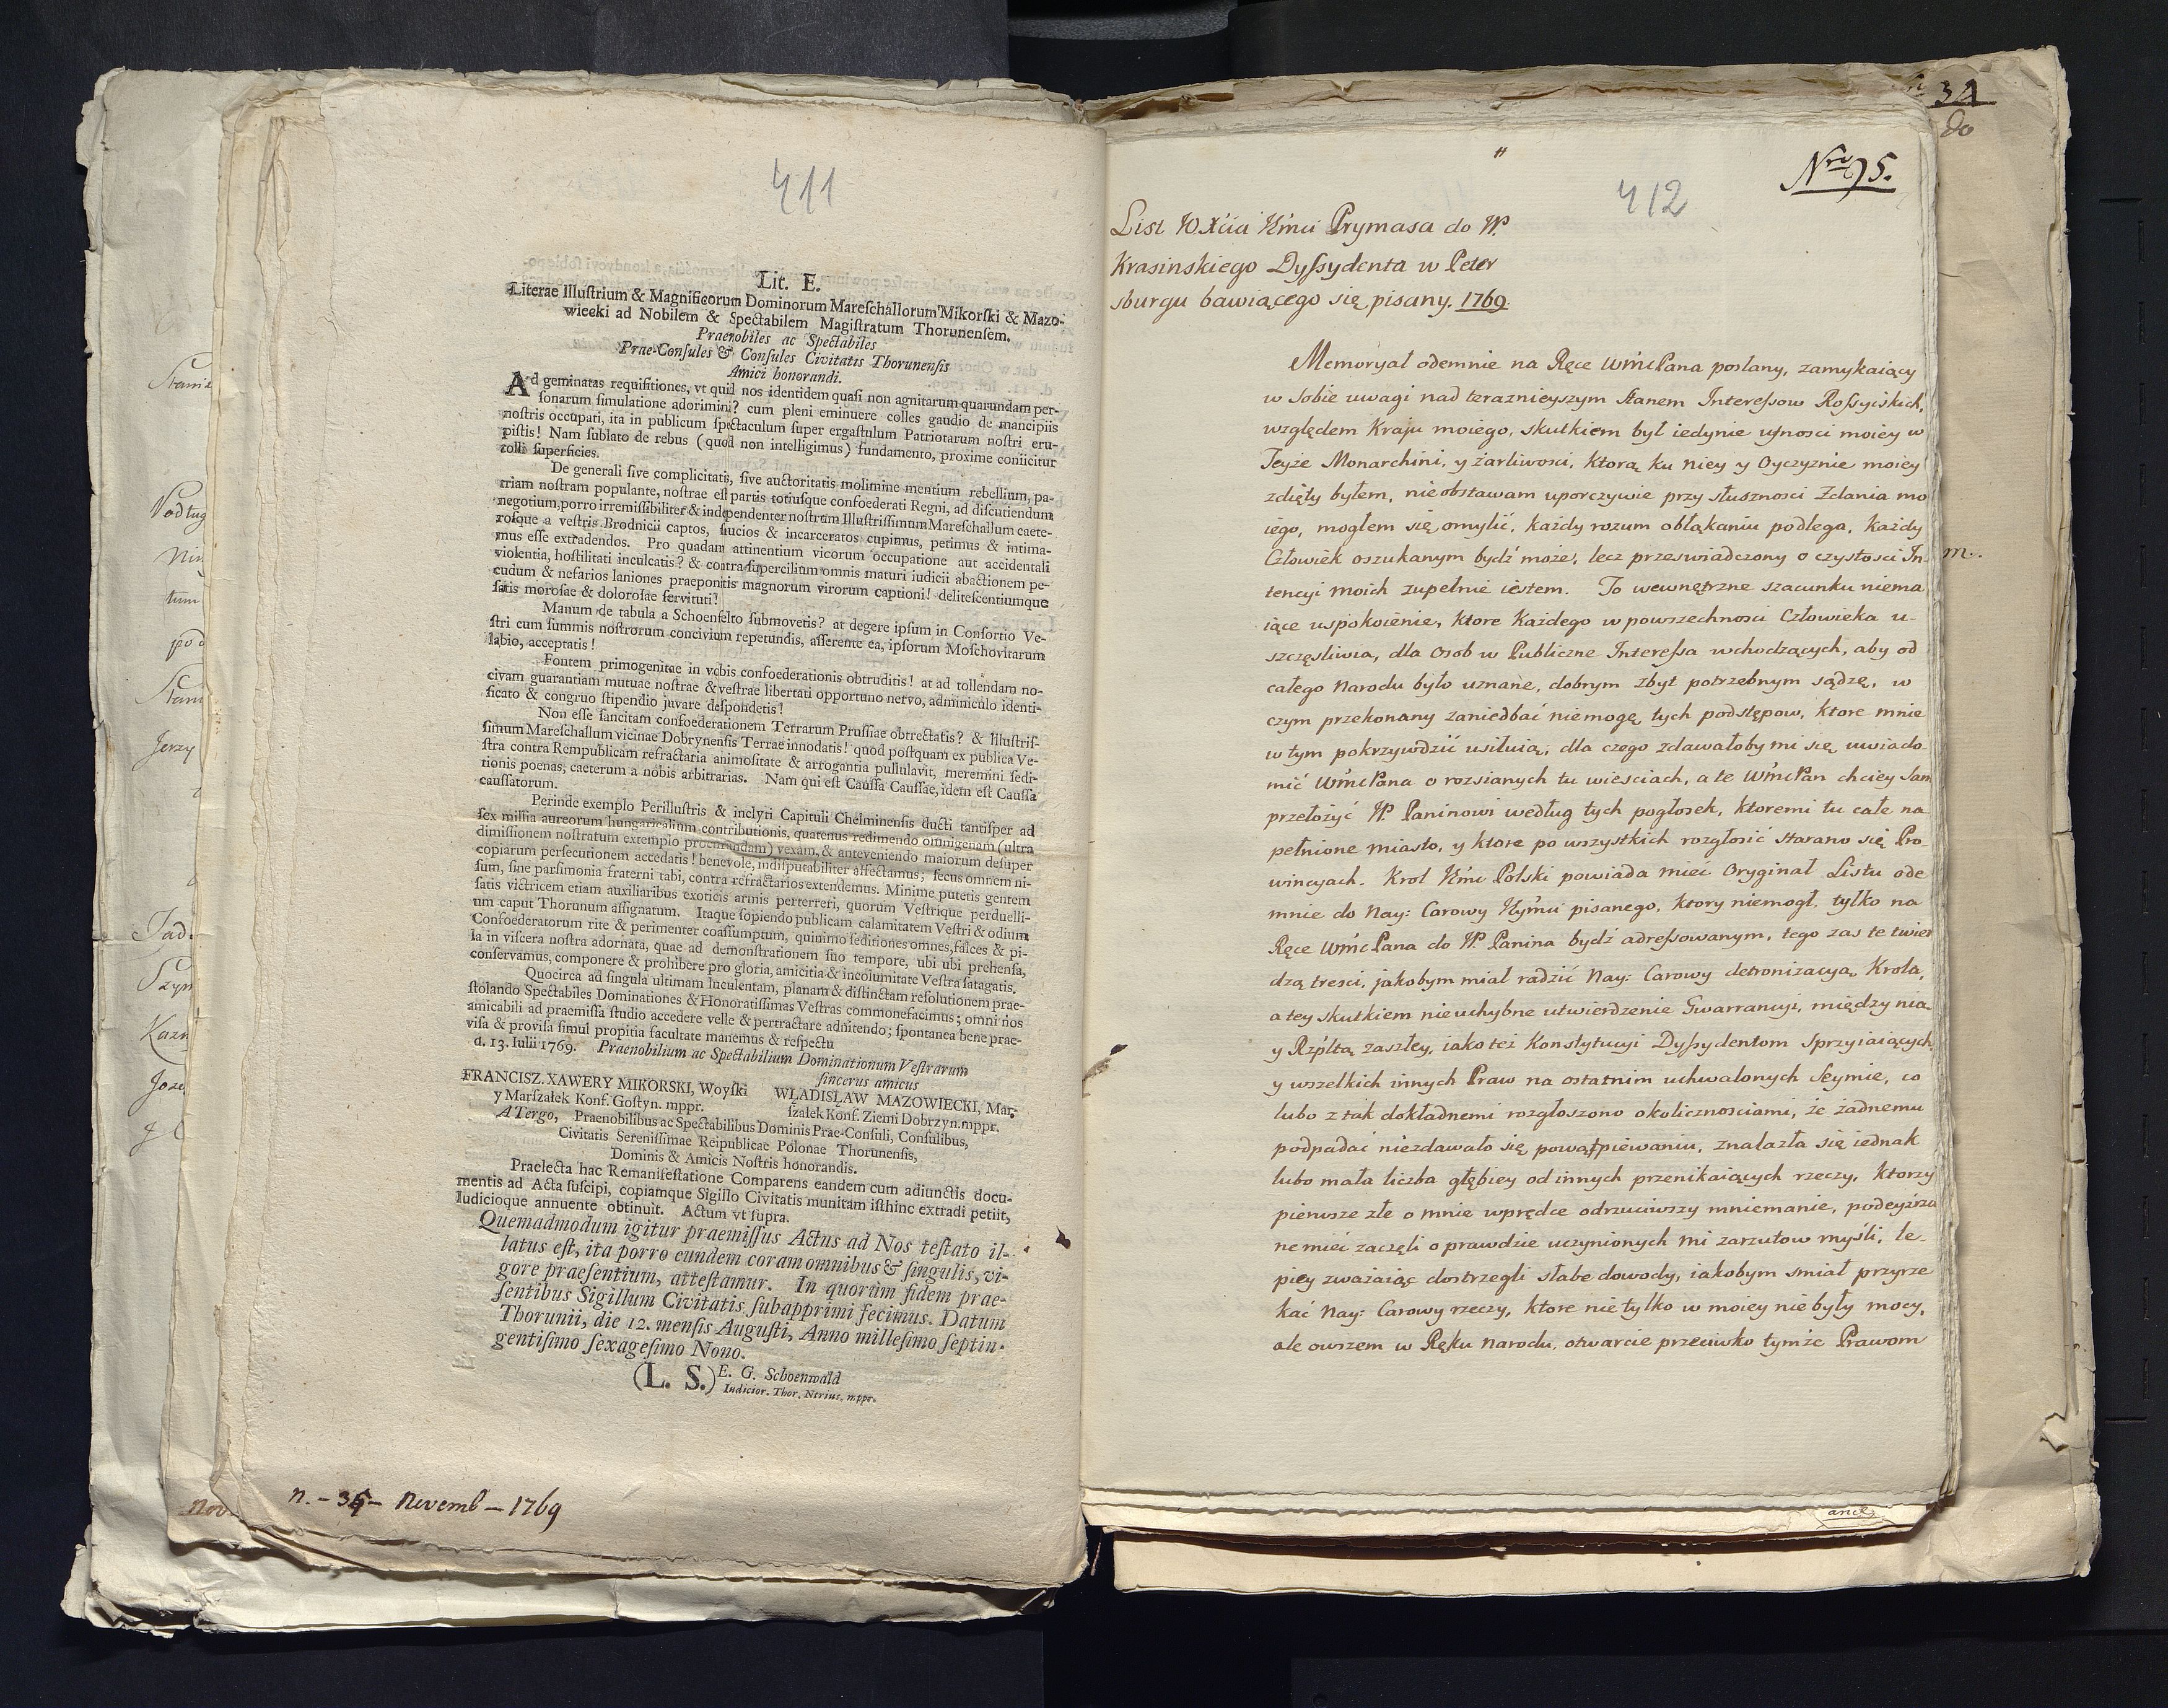 411
Lit. E.
Literae Illuſtrium & Magnificorum Dominorum Mareſchallorum Mikorſki & Mazo-
wiecki ad Nobilem & Spectabilem Magiſtratum Thorunenſem.
Praenobiles ac Spectabiles
Prae-Conſules & Conſules Civitatis Thorunenſis
Amici honorandi.
Ad geminatas requiſitiones, vt quid nos identidem quaſi non agnitarum quarundam per-
ſonarum ſimulatione adorimini? cum pleni eminuere colles gaudio de mancipiis
noſtris occupati, ita in publicum ſpectaculum ſuper ergaſtulum Patriotarum noſtri eru-
piſtis! Nam ſublato de rebus (quod non intelligimus) fundamento, proxime coniicitur
tolli ſuperficies.
De generali ſive complicitatis, ſive auctoritatis molimine mentium rebellium, pa-
triam noſtram populante, noſtrae eſt partis totiuſque confoederati Regni, ad diſcutiendum
negotium, porro irremiſſibiliter & independenter noſtrum Illuſtriſſimum Mareſchallum caete-
roſque a veſtris Brodnicii captos, ſaucios & incarceratos cupimus, petimus & intima-
mus eſſe extradendos. Pro quadam attinentium vicorum occupatione aut accidentali
violentia, hoſtilitati inculcatis? & contra ſupercilium omnis maturi iudicii abactionem pe-
cudum & nefarios laniones praeponitis magnorum virorum captioni! deliteſcentiumque
ſatis moroſae & doloroſae ſervituti!
Manum de tabula a Schoenfelto ſubmovetis? at degere ipſum in Conſortio Ve-
ſtri cum ſummis noſtrorum concivium repetundis, aſſerente ea, ipſorum Moſchovitarum
labio, acceptatis!
Fontem primogenitae in vobis confoederationis obtruditis! at ad tollendam no-
civam guarantiam mutuae noſtrae & veſtrae libertati opportuno nervo, adminiculo identi-
ficato & congruo ſtipendio juvare deſpondetis!
Non eſſe ſancitam confoederationem Terrarum Pruſſiae obtrectatis? & Illuſtriſ-
ſimum Mareſchallum vicinae Dobrynenſis Terrae innodatis! quod poſtquam ex publica Ve-
ſtra contra Rempublicam refractaria animoſitate & arrogantia pullulavit, meremini ſedi-
tionis poenas, caeterum a nobis arbitrarias. Nam qui eſt Cauſſa Cauſſae, idem eſt Cauſſa
cauſſatorum.
Perinde exemplo Perilluſtris & inclyti Capituli Chelminenſis ducti tantiſper ad
ſex millia aureorum hungaricalium contributionis, quatenus redimendo omnigenam (ultra
dimiſſionem noſtratum extemplo procurandam) vexam, & anteveniendo maiorum deſuper
copiarum perſecutionem accedatis! benevole, indiſputabiliter affectamus; ſecus omnem ni-
ſum, ſine parſimonia fraterni tabi, contra refractarios extendemus. Minime putetis gentem
ſatis victricem etiam auxiliaribus exoticis armis perterreri, quorum Veſtrique perduelli-
um caput Thorunum aſſignatum. Itaque ſopiendo publicam calamitatem Veſtri & odium
Confoederatorum rite & perimenter coaſſumptum, quinimo ſeditiones omnes, falces & pi-
la in viſcera noſtra adornata, quae ad demonſtrationem ſuo tempore, ubi ubi prehenſa,
conſervamus, componere & prohibere pro gloria, amicitia & incolumitate Veſtra ſatagatis.
Quocirca ad ſingula ultimam luculentam, planam & diſtinctam reſolutionem prae-
ſtolando Spectabiles Dominationes & Honoratiſſimas Veſtras commonefacimus; omni nos
amicabili ad praemiſſa ſtudio accedere velle & pertractare adnitendo; ſpontanea bene prae-
viſa & proviſa ſimul propitia facultate manemus & reſpectu
d. 13. Iulii 1769. Praenobilium ac Spectabilium Dominationum Veſtrarum
ſincerus amicus
FRANCISZ. XAWERY MIKORSKI, Woyſki WŁADISŁAW MAZOWIECKI, Mar-
y Marſzałek Konf. Goſtyn. mppr. ſzałek Konf. Ziemi Dobrzyn. mppr.
A Tergo, Praenobilibus ac Spectabilibus Dominis Prae-Conſuli, Conſulibus,
Civitatis Sereniſſimae Reipublicae Polonae Thorunenſis,
Dominis & Amicis Noſtris honorandis.
Praelecta hac Remanifeſtatione Comparens eandem cum adiunctis docu-
mentis ad Acta ſuſcipi, copiamque Sigillo Civitatis munitam iſthinc extradi petiit,
Iudicioque annuente obtinuit. Actum vt ſupra.
Quemadmodum igitur praemiſſus Actus ad Nos teſtato il-
latus eſt, ita porro eundem coram omnibus & ſingulis, vi-
gore praeſentium, atteſtamur. In quorum fidem prae-
ſentibus Sigillum Civitatis ſubapprimi fecimus. Datum
Thorunii, die 12. menſis Auguſti, Anno milleſimo ſeptin-
gentiſimo ſexageſimo Nono.
(L. S.) E. G. Schoenwald
Iudicior. Thor. Ntrius. mppr.
n. - 35 - Novemb - 1769
Nro 95.
412
List JO Xcia Jmci Prymasa do JP.
Krasinskiego Dyssydenta w Peter
sburgu bawiącego się pisany. 1769.
Memoryał odemnie na Ręce WmcPana posłany, zamykaiący
w sobie uwagi nad teraznieyszym stanem Interessow Rossyiskich,
względem Kraju moiego, skutkiem był iedynie ufnosci moiey w
Teyże Monarchini, y żarliwosci, ktorą ku niey y Oyczyznie moiey
zdięty byłem, nieobstawam uporczywie przy słusznosci zdania mo
iego, mogłem się omylić, każdy rozum obłąkaniu podlega, każdy
Człowiek oszukanym bydź może, lecz przeswiadczony o czystosci In-
tencyi moich zupełnie iestem. To wewnętrzne szacunku niema
iące uspokoienie, ktore każdego w powszechnosci Człowieka u-
szczęsliwia, dla Osob w Publiczne Interessa wchodzących, aby od
całego Narodu było uznane, dobrym zbyt potrzebnym sądzę, w
czym przekonany zaniedbać niemogę tych podstępow, ktore mnie
w tym pokrzywdzić usiłuią, dla czego zdawałoby mi się uwiado
mić WmcPana o rozsianych tu wiesciach, a te WmcPan chciey sam
przełożyć JP. Paninowi według tych pogłosek, ktoremi tu całe na
pełnione miasto, y ktore po wszystkich rozgłosić starano się Pro-
wincyach. Krol Jmc Polski powiada mieć Oryginał Listu ode
mnie do Nay: Carowy Jeymci pisanego, ktory niemogł, tylko na
Ręce WmcPana do JP. Panina bydź adressowanym, tego zas te twier
dzą tresci, jakobym miał radzić Nay: Carowy detronizacyą Krola,
a tey skutkiem nieuchybne utwierdzenie Gwarrancyi, między nią
y Rzpltą zaszłey, iako też Konstytucyi Dyssydentom sprzyiaiących,
y wszelkich innych Praw na ostatnim uchwalonych Seymie, co
lubo z tak dokładnemi rozgłoszono okolicznosciami, że żadnemu
podpadać niezdawało się powątpiewaniu, znalazła się iednak
lubo mała liczba głębiey od innych przenikaiących rzeczy, ktorzy
pierwsze złe o mnie wprędce odrzuciwszy mniemanie, podeyźrza
ne mieć zaczęli o prawdzie uczynionych mi zarzutow mysli, le-
piey zważaiąc dostrzegli słabe dowody, iakobym smiał przyrze
kać Nay: Carowy rzeczy, ktore nie tylko w moiey nie były mocy,
ale owszem w Ręku Narodu, otwarcie przeciwko tymże Prawom